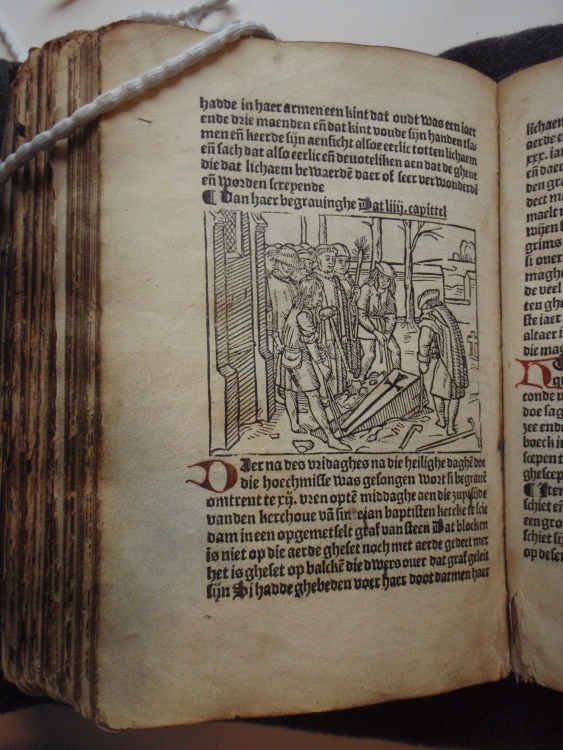 hadde in haer armen een kint dat oudt was een iaer
ende drie maenden eñ dat kint voude sijn handen tsa-
men eñ keerde sijn aensicht alsoe eerlic totten lichaem
eñ sach dat also eerlic eñ deuoteliken aen dat de ghene
die dat lichaem bewaerdē daer of seer verwonderdē
eñ worden screyende
¶ Van haer begrauinghe Dat liiij. capittel
DAer na des vridaghes na die heilighe daghē doe
die hoechmisse was gesongen wort si begrauē
omtrent te xij. vren optē middaghe aen die zuytsijde
vanden kerchoue vā sint ian baptisten kercke te scie
dam in een opgemetselt graf van steen Dat blocken
is niet op die aerde gheset noch met aerde gedect mer
het is gheset op balckē die dwers ouer dat graf geleit
sijn Si hadde ghebeden voer haer doot datmen haer
lichaem
aerde e
xxx. iar
eñ daer
den gra
dect m
maelt
wijen
grims
si ouer
maghe
de veel
ten gh
ste iaer
altaer i
die mag
conde n
doe sag
zee ende
boeck in
scepen t
ghescep
¶ Iter
schiet eñ
een gro
schiet si
op dese